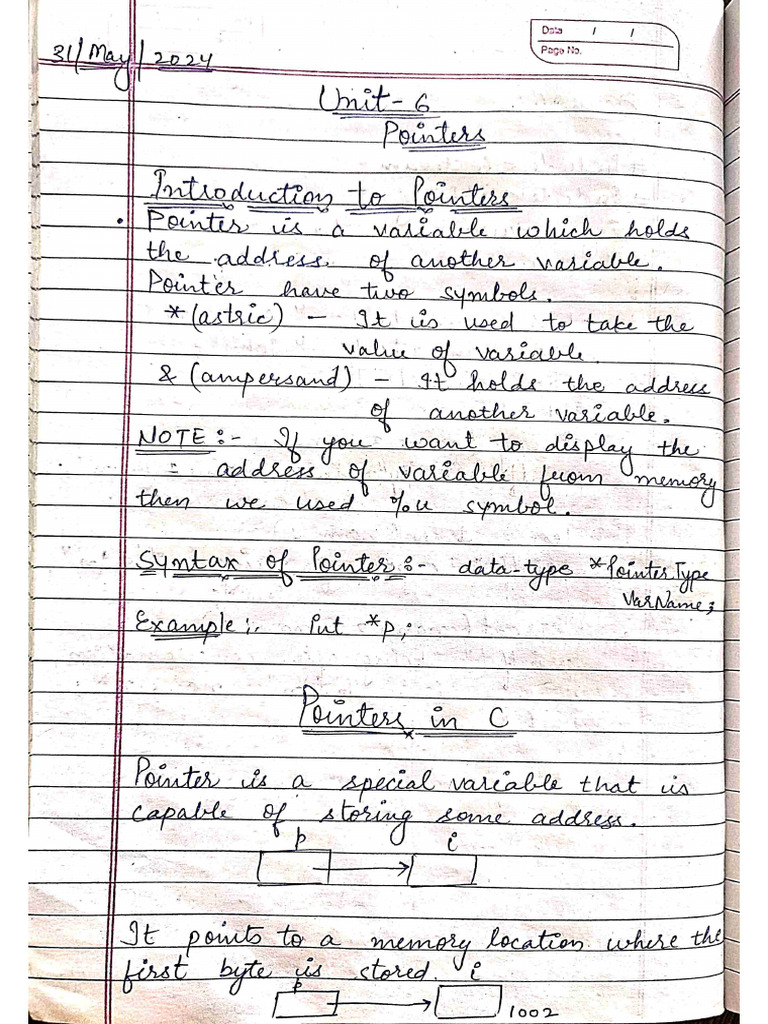 Data / /
Page No.
31/May/2024
Unit-6
Pointers
Introduction to Pointers
• Pointer is a variable which holds
the address of another variable.
Pointer have two symbols.
*(astric) - It is used to take the
value of variable
& (ampersand) - It holds the address
of another variable.
NOTE:- If you want to display the
= address of variable from memory
then we used %u symbol.
Syntax of Pointer:- data-type *PointerType
VarName;
Example:. int *p;
Pointers in C
Pointer is a special variable that is
capable of storing some address.
p i
It points to a memory location where the
first byte is stored.
p i
1002